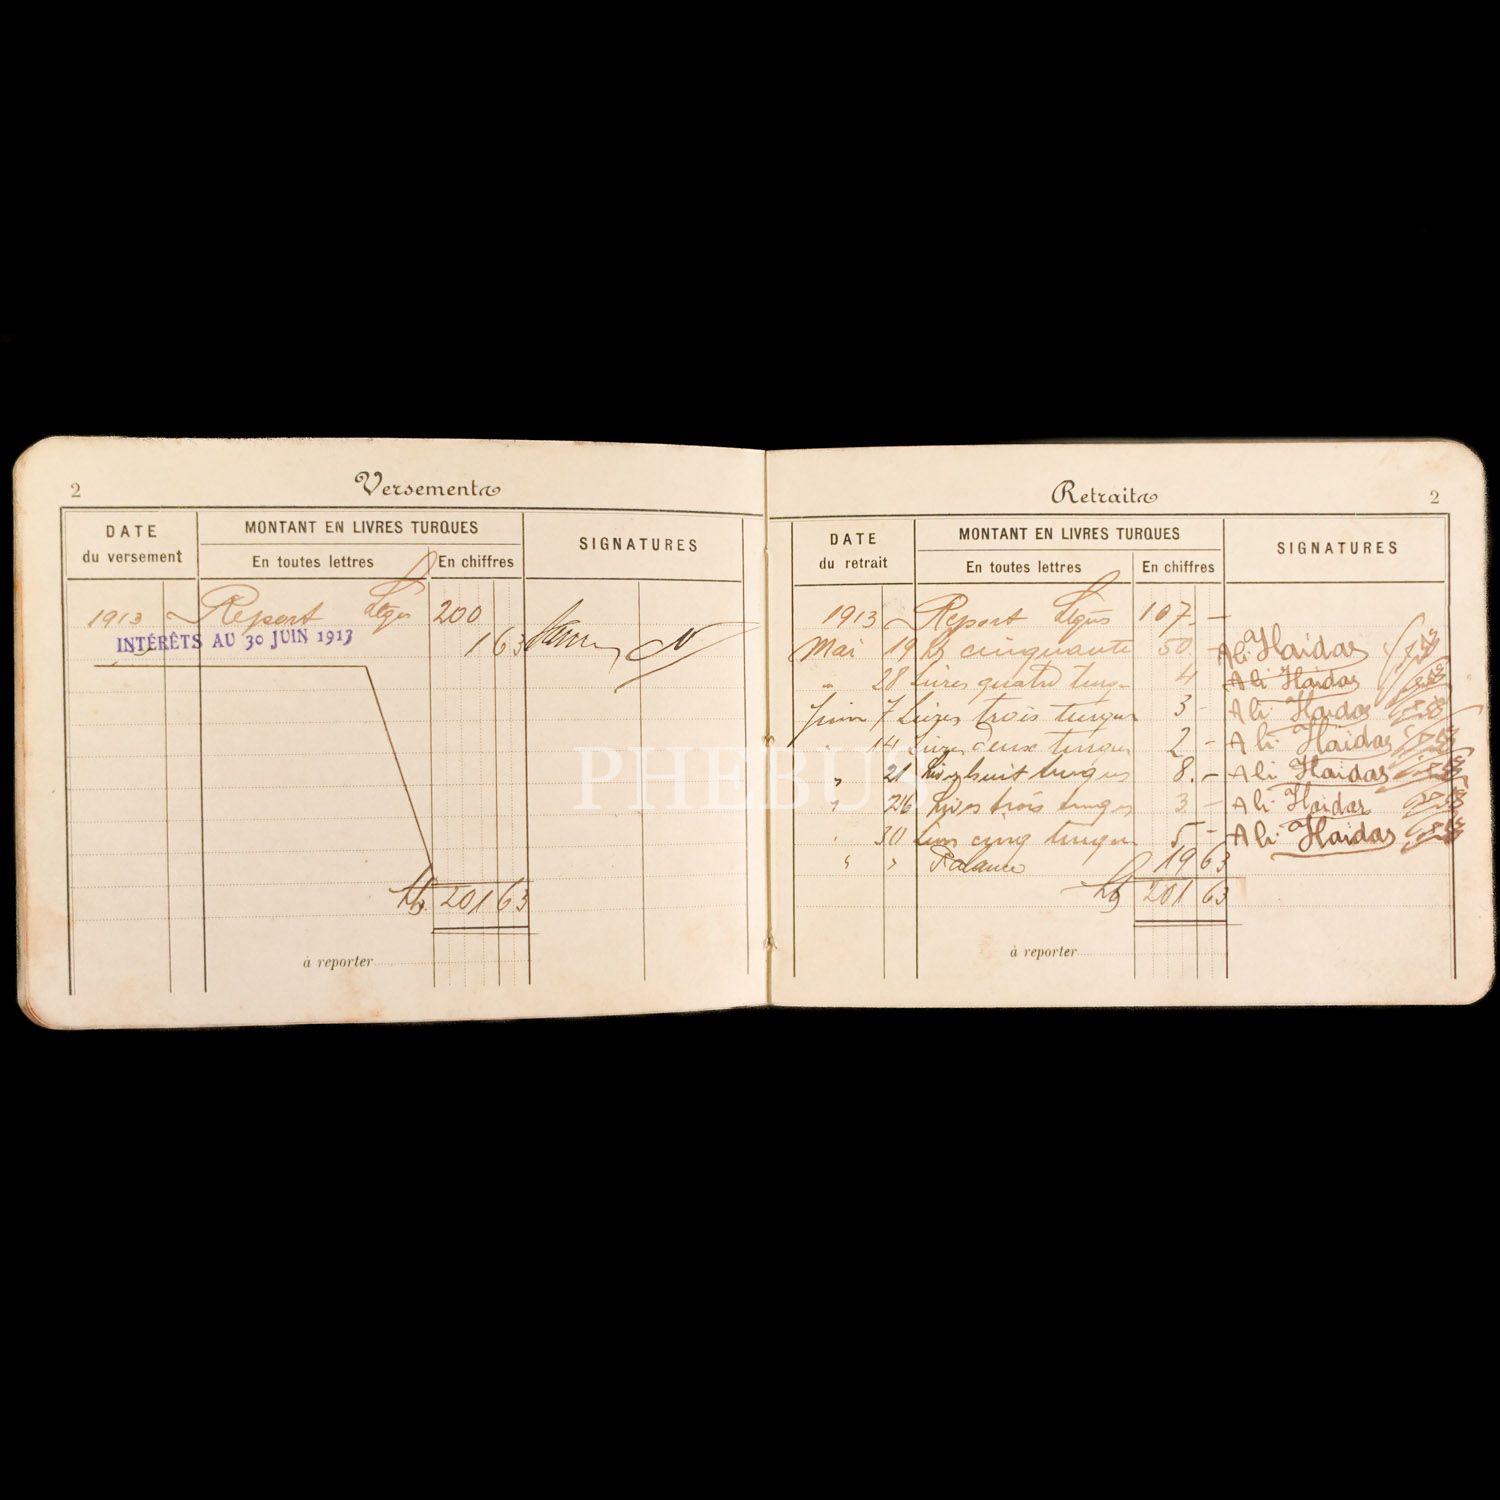 2
Versements
DATE
du versement
MONTANT EN LIVRES TURQUES
En toutes lettres
En chiffres
SIGNATURES
1913 Report Ltqs 200
INTÉRÊTS AU 30 JUIN 1913 1 63
201 63
à reporter
Retraits
2
DATE
du retrait
MONTANT EN LIVRES TURQUES
En toutes lettres
En chiffres
SIGNATURES
1913 Report Ltqs 107 -
Mai 19 cinquante 50 - Ali Haidar
" 28 Livres quatre turq 4 Ali Haidar
Juin 7 Livres trois turques 3 - Ali Haidar
14 Livres deux turques 2 - Ali Haidar
" 21 Livres huit turques 8 - Ali Haidar
" 26 Livres trois turques 3 - Ali Haidar
30 Livres cinq turques 5 - Ali Haidar
" " Balance 19 63
201 63
à reporter
PHEBUS